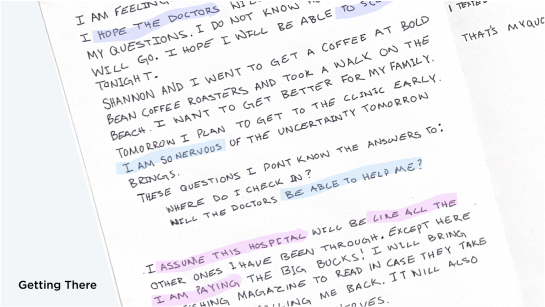 I AM FEELING
I HOPE THE DOCTORS WIL
MY QUESTIONS. I DO NOT KNOW
WILL GO. I HOPE I WILL BE ABLE TO
TONIGHT.
SHANNON AND I WENT TO GET A COFFEE AT BOLD
BEAN COFFEE ROASTERS AND TOOK A WALK ON THE
BEACH. I WANT TO GET BETTER FOR MY FAMILY.
TOMORROW I PLAN TO GET TO THE CLINIC EARLY.
I AM SO NERVOUS OF THE UNCERTAINTY TOMORROW
BRINGS.
THESE QUESTIONS I DONT KNOW THE ANSWERS TO:
WHERE DO I CHECK IN?
WILL THE DOCTORS BE ABLE TO HELP ME?
I ASSUME THIS HOSPITAL WILL BE LIKE ALL THE
OTHER ONES I HAVE BEEN THROUGH. EXCEPT HERE
I AM PAYING THE BIG BUCKS! I WILL BRING
SHING MAGAZINE TO READ IN CASE THEY TAKE
LLING ME BACK. IT WILL ALSO
THAT'S MY QUO
Getting There